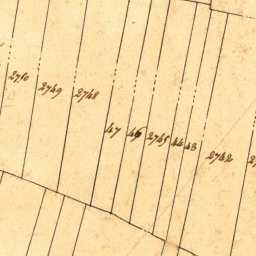 2750
2749
2748
47
46
2745
44
43
2742